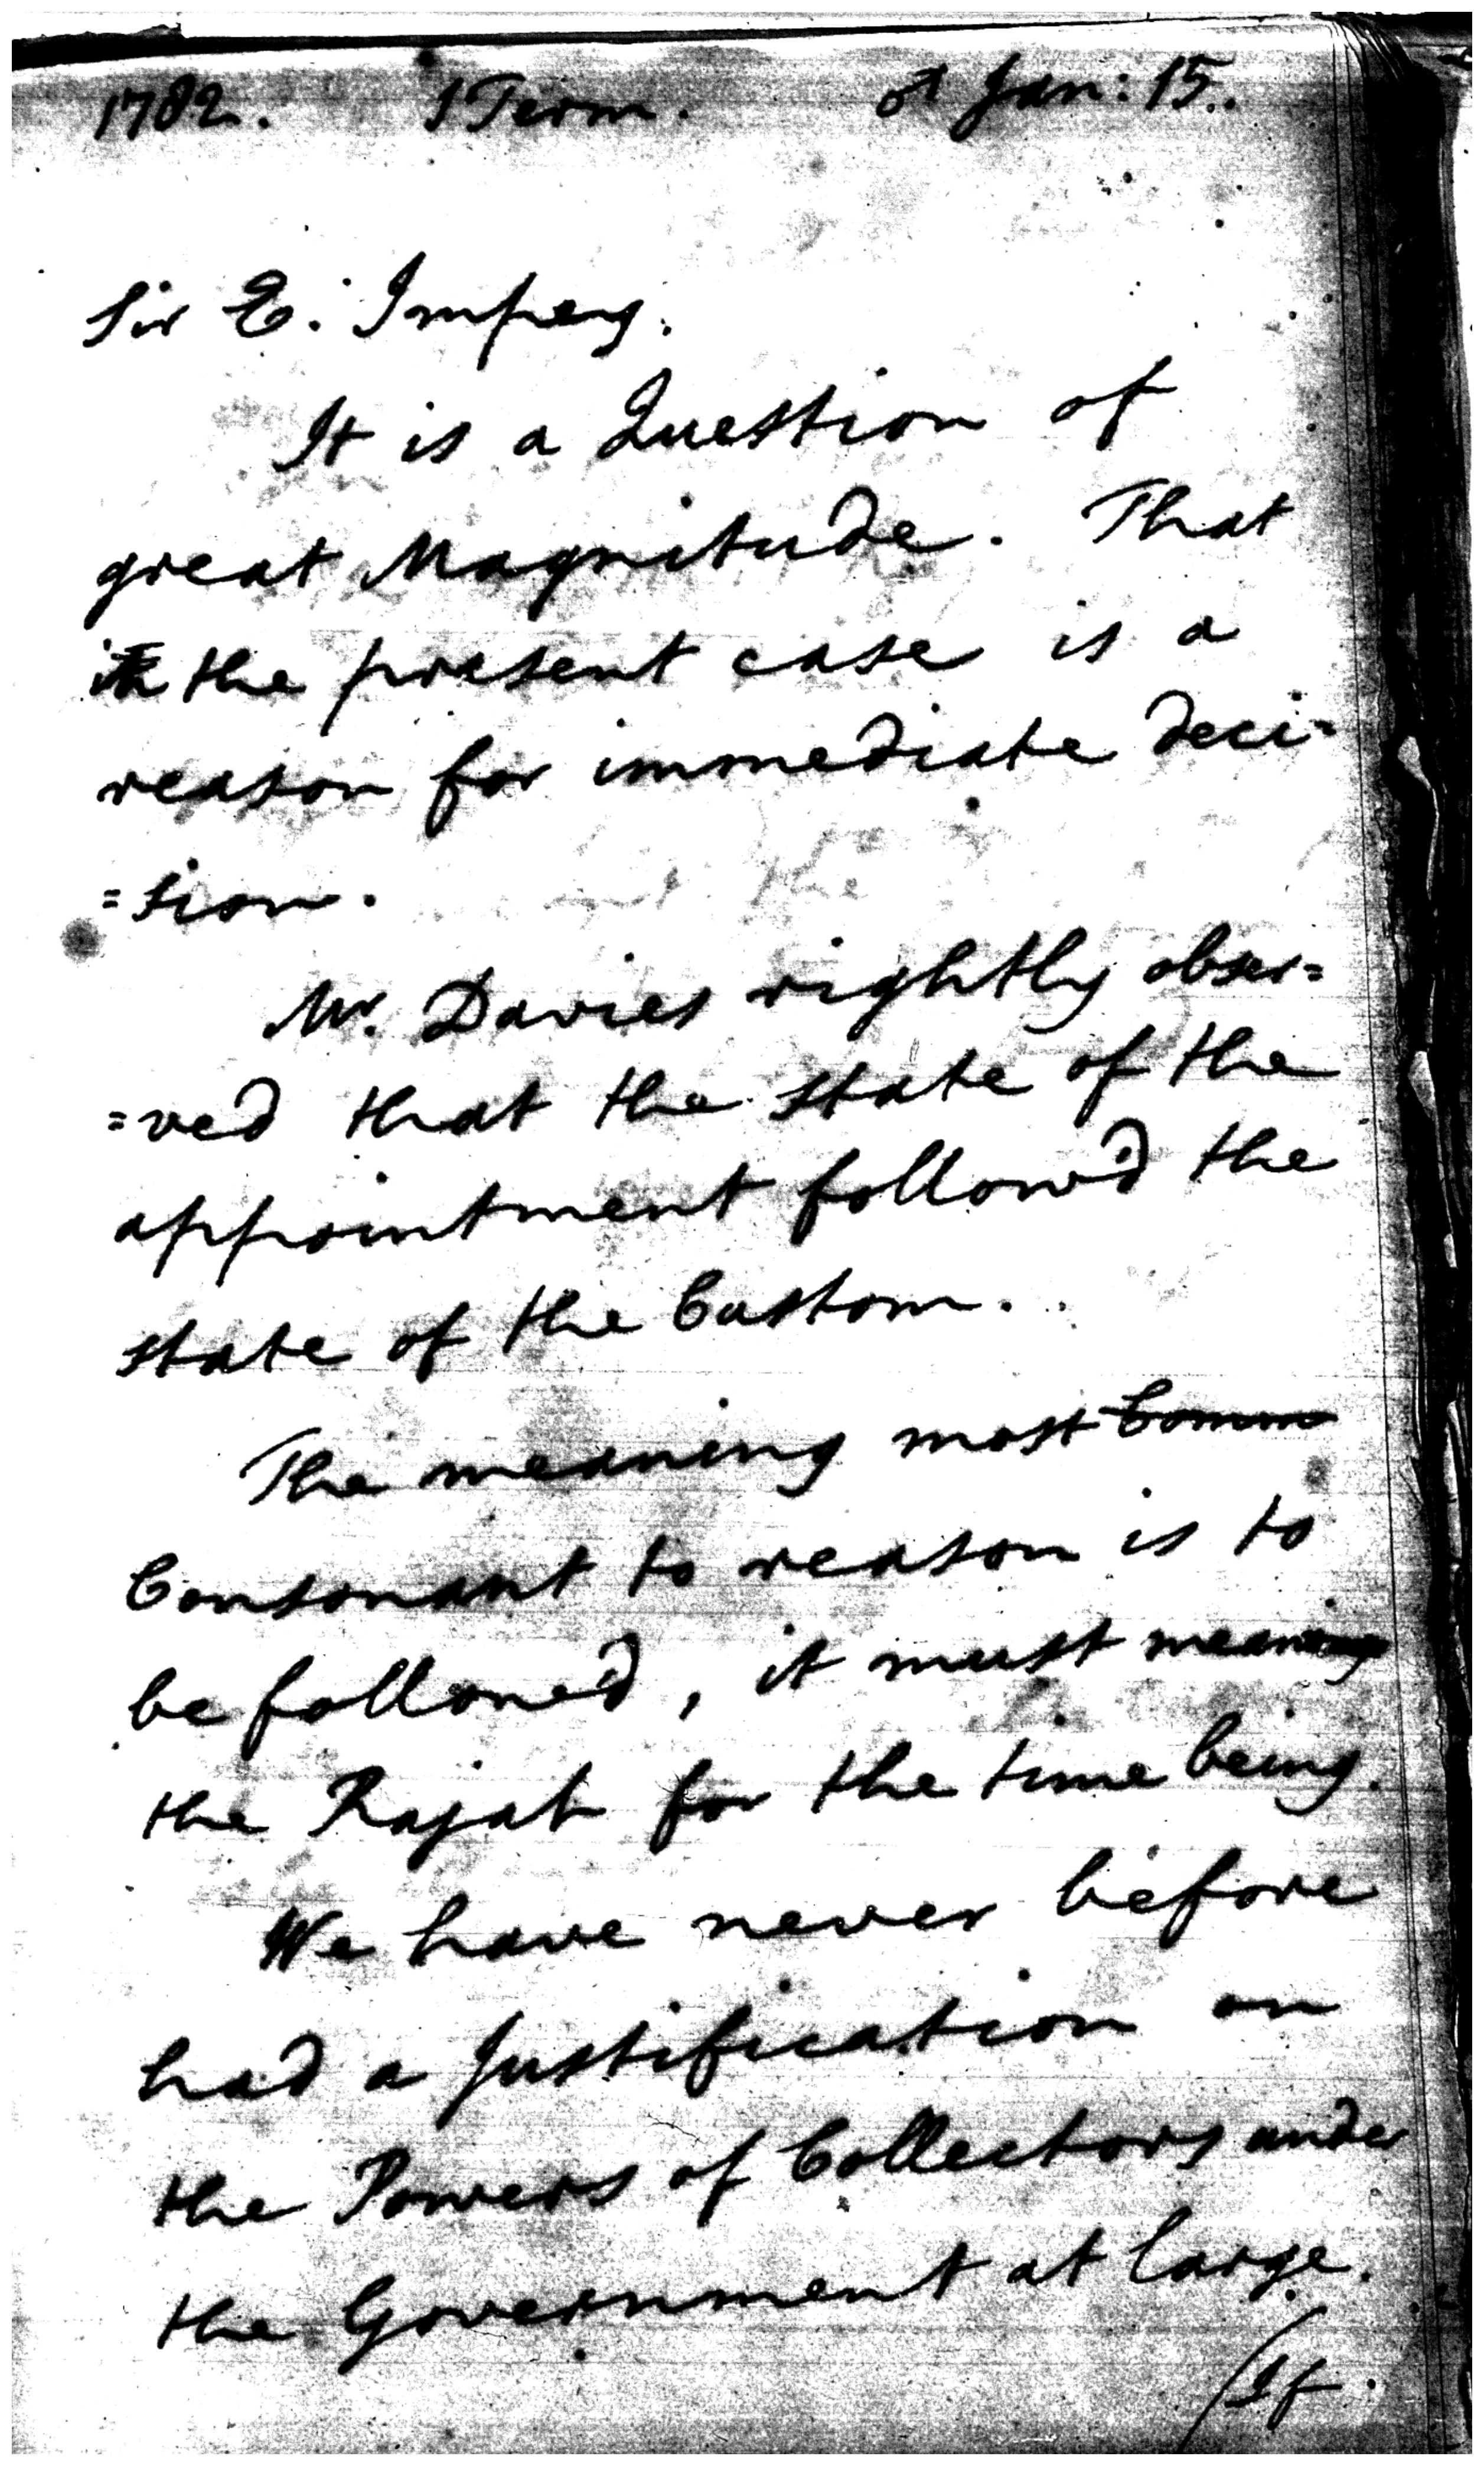 1782. 1 Term. Jan: 15.
Sir E. Impey.
It is a Question of
great Magnitude. That
in the present case is a
reason for immediate deci=
=sion.
Mr. Davies rightly obser=
=ved that the state of the
appointment follow'd the
state of the Custom.
The meaning most Comm
Consonant to reason is to
be followed, it must meaning
the Rajah for the time being.
We have never before
had a Justification on
the Powers of Collectors under
the Government at large.
(If.